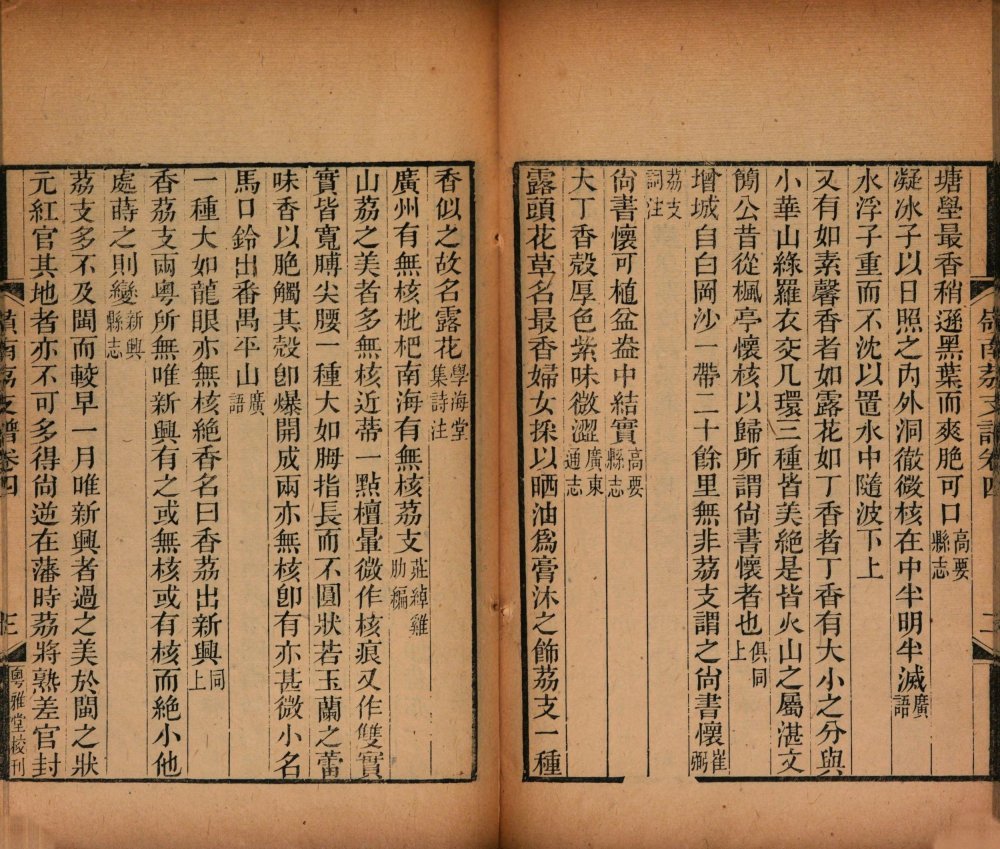 塘壆最香稍遜黑葉而爽脆可口高要縣志
凝冰子以日照之內外洞徹微核在中半明半滅廣語
水浮子重而不沈以置水中隨波下上
又有如素馨香者如露花如丁香者丁香有大小之分與
小華山綠羅衣交几環三種皆美絕是皆火山之屬湛文
簡公昔從楓亭懷核以歸所謂尚書懷者也俱同上
增城自白岡沙一帶二十餘里無非荔支謂之尚書懷崔弼
荔支詞注
尚書懷可植盆盎中結實高要縣志
大丁香殼厚色紫味微澀廣東通志
露頭花草名最香婦女採以晒油為膏沐之飾荔支一種
香似之故名露花學海堂集詩注
廣州有無核枇杷南海有無核荔支莊綽雞肋編
山荔之美者多無核近蒂一點檀暈微作核痕又作雙實
實皆寬膊尖腰一種大如胟指長而不圓狀若玉蘭之蕾
味香以脆觸其殼卽爆開成兩亦無核卽有亦甚微小名
馬口鈴出番禺平山廣語
一種大如龍眼亦無核絕香名曰香荔出新興同上
香荔支兩粵所無唯新興有之或無核或有核而絕小他
處蒔之則變新興縣志
荔支多不及閩而較早一月唯新興者過之美於閩之狀
元紅官其地者亦不可多得尚逆在藩時荔將熟差官封
嶺南荔支譜卷四
三
粵雅堂校刊